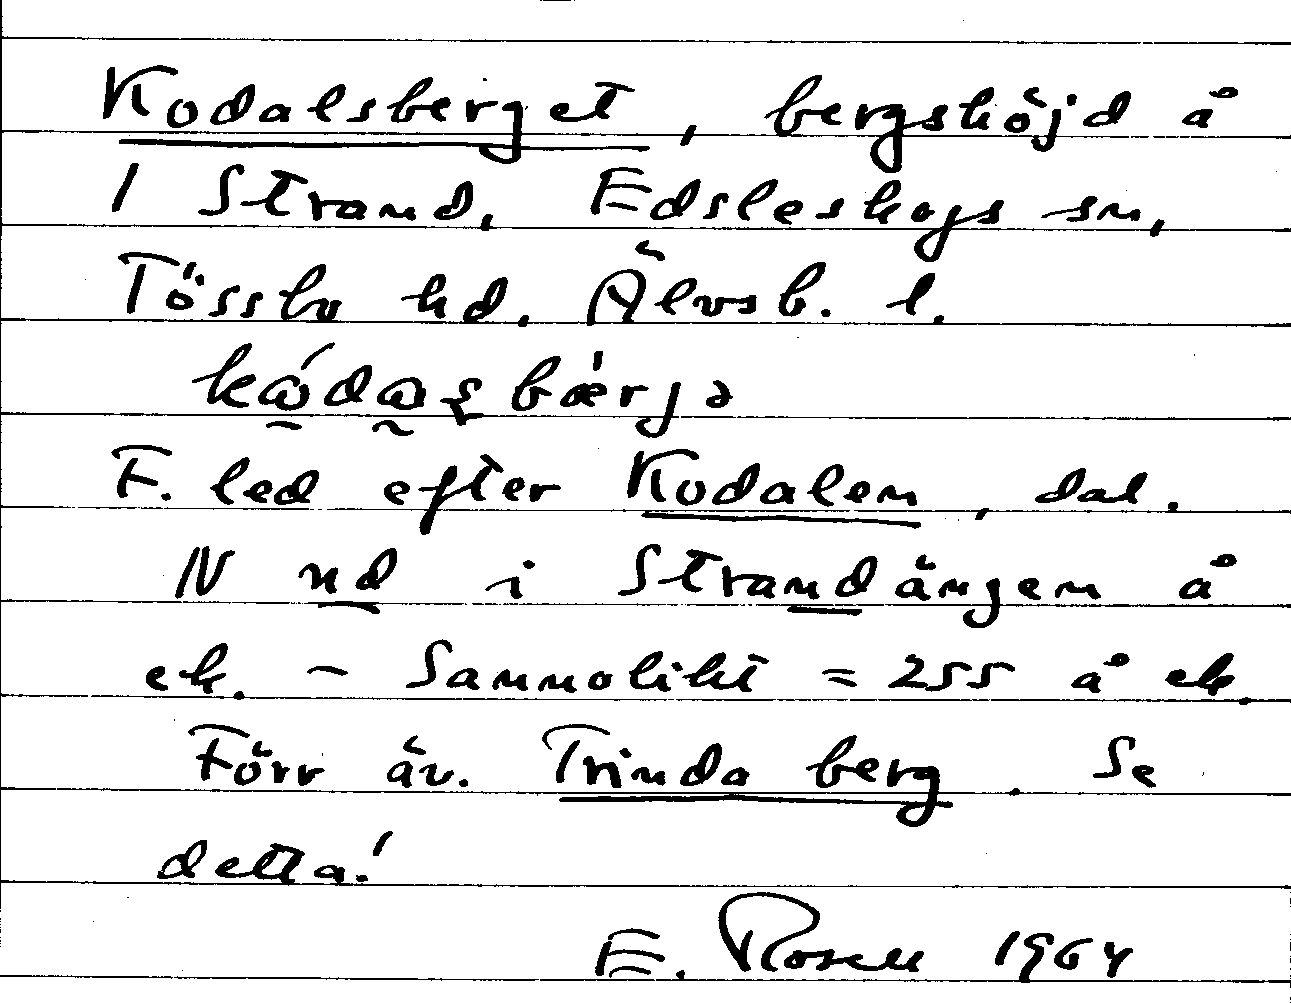 Kodalsberget, bergshöjd å
1 Strand, Edsleskogs sn,
Tössbo hd. Älvsb. l.
F. led efter Kodalen, dal.
N nd i Strandängen å
ek. - Sannolikt = 255 å ek.
Förr äv. Trinda berg. Se
detta!
E. Rosell 1964